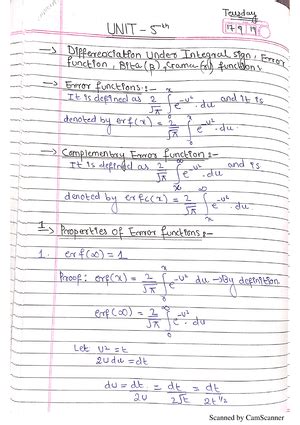 Tuesday
UNIT - 5th
17 9 19
→ Differenciation Under Integral sign, Error
function, Bita (β), Gama (γ) functions
→ Error functions :-
It is defined as 2/√π ∫₀ˣ e^-u² . du and it is
denoted by erf(x) = 2/√π ∫₀ˣ e^-u² . du
→ Complementry Error function :-
It is defined as 2/√π ∫ₓ^∞ e^-u² . du and is
denoted by erfc(x) = 2/√π ∫ₓ^∞ e^-u² . du
1 Properties of Error functions :-
1. erf(∞) = 1
Proof: erf(x) = 2/√π ∫₀ˣ e^-u² du → By definition
erf(∞) = 2/√π ∫₀^∞ e^-u² . du
Let u² = t
2u du = dt
du = dt/2u = dt/2√t = dt/2t^1/2
Scanned by CamScanner